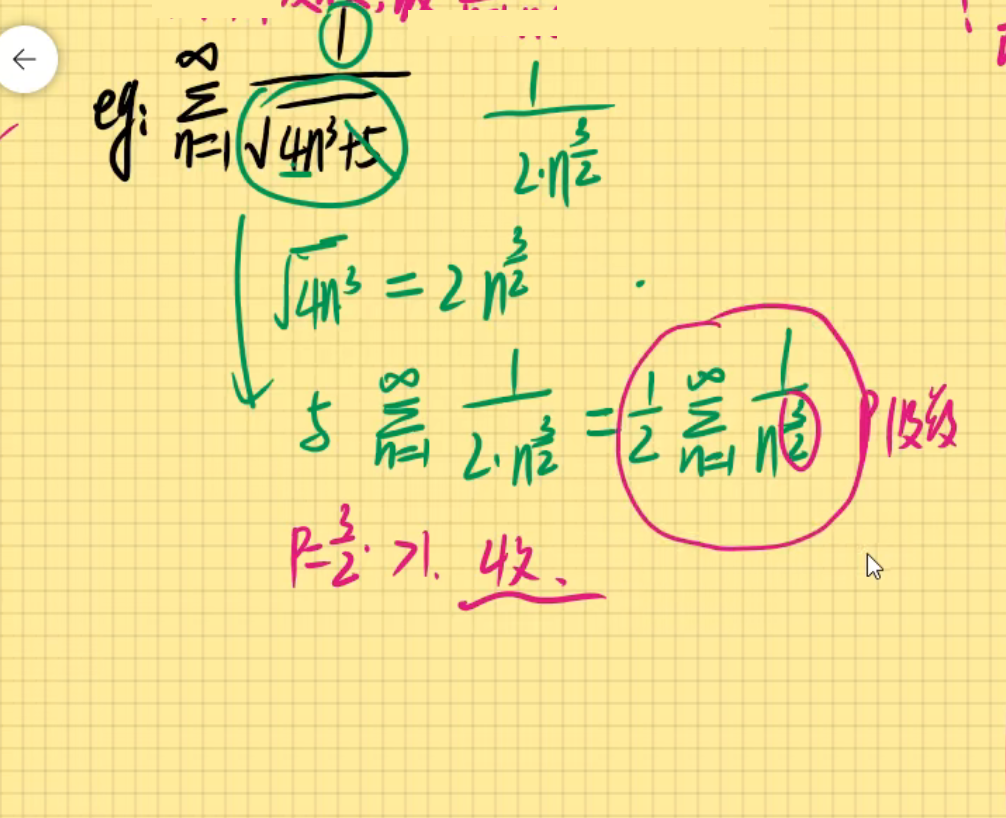 eg: ∞∑n=1 1/√(4n³+5) 1/(2·n^(3/2))
√(4n³) = 2 n^(3/2)
5 ∞∑n=1 1/(2·n^(3/2)) = 1/2 ∞∑n=1 1/n^(3/2) P级数
P=3/2 >1. 收、